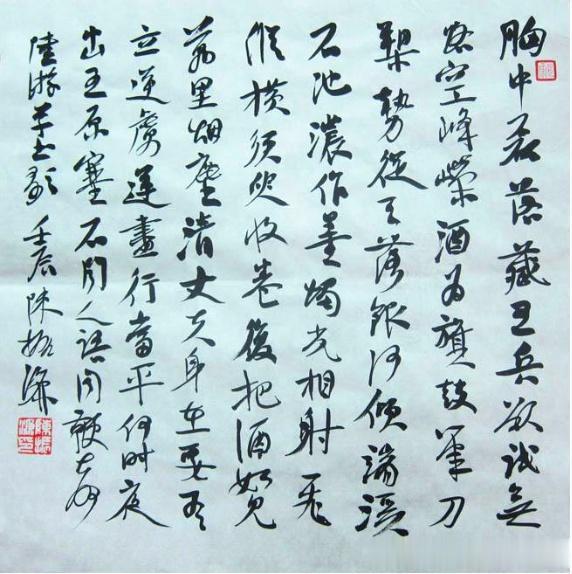 胸中磊落藏五兵欲試無
路空崢嶸酒為旗鼓筆刀
槊勢從天落銀河傾端溪
石池濃作墨燭光相射飛
縱橫須臾收卷復把酒如見
萬里烟塵清丈夫身在要有
立逆虜運盡行當平何時夜
出五原塞不聞人語聞鞭聲
陸游草書歌 壬辰陳振濂